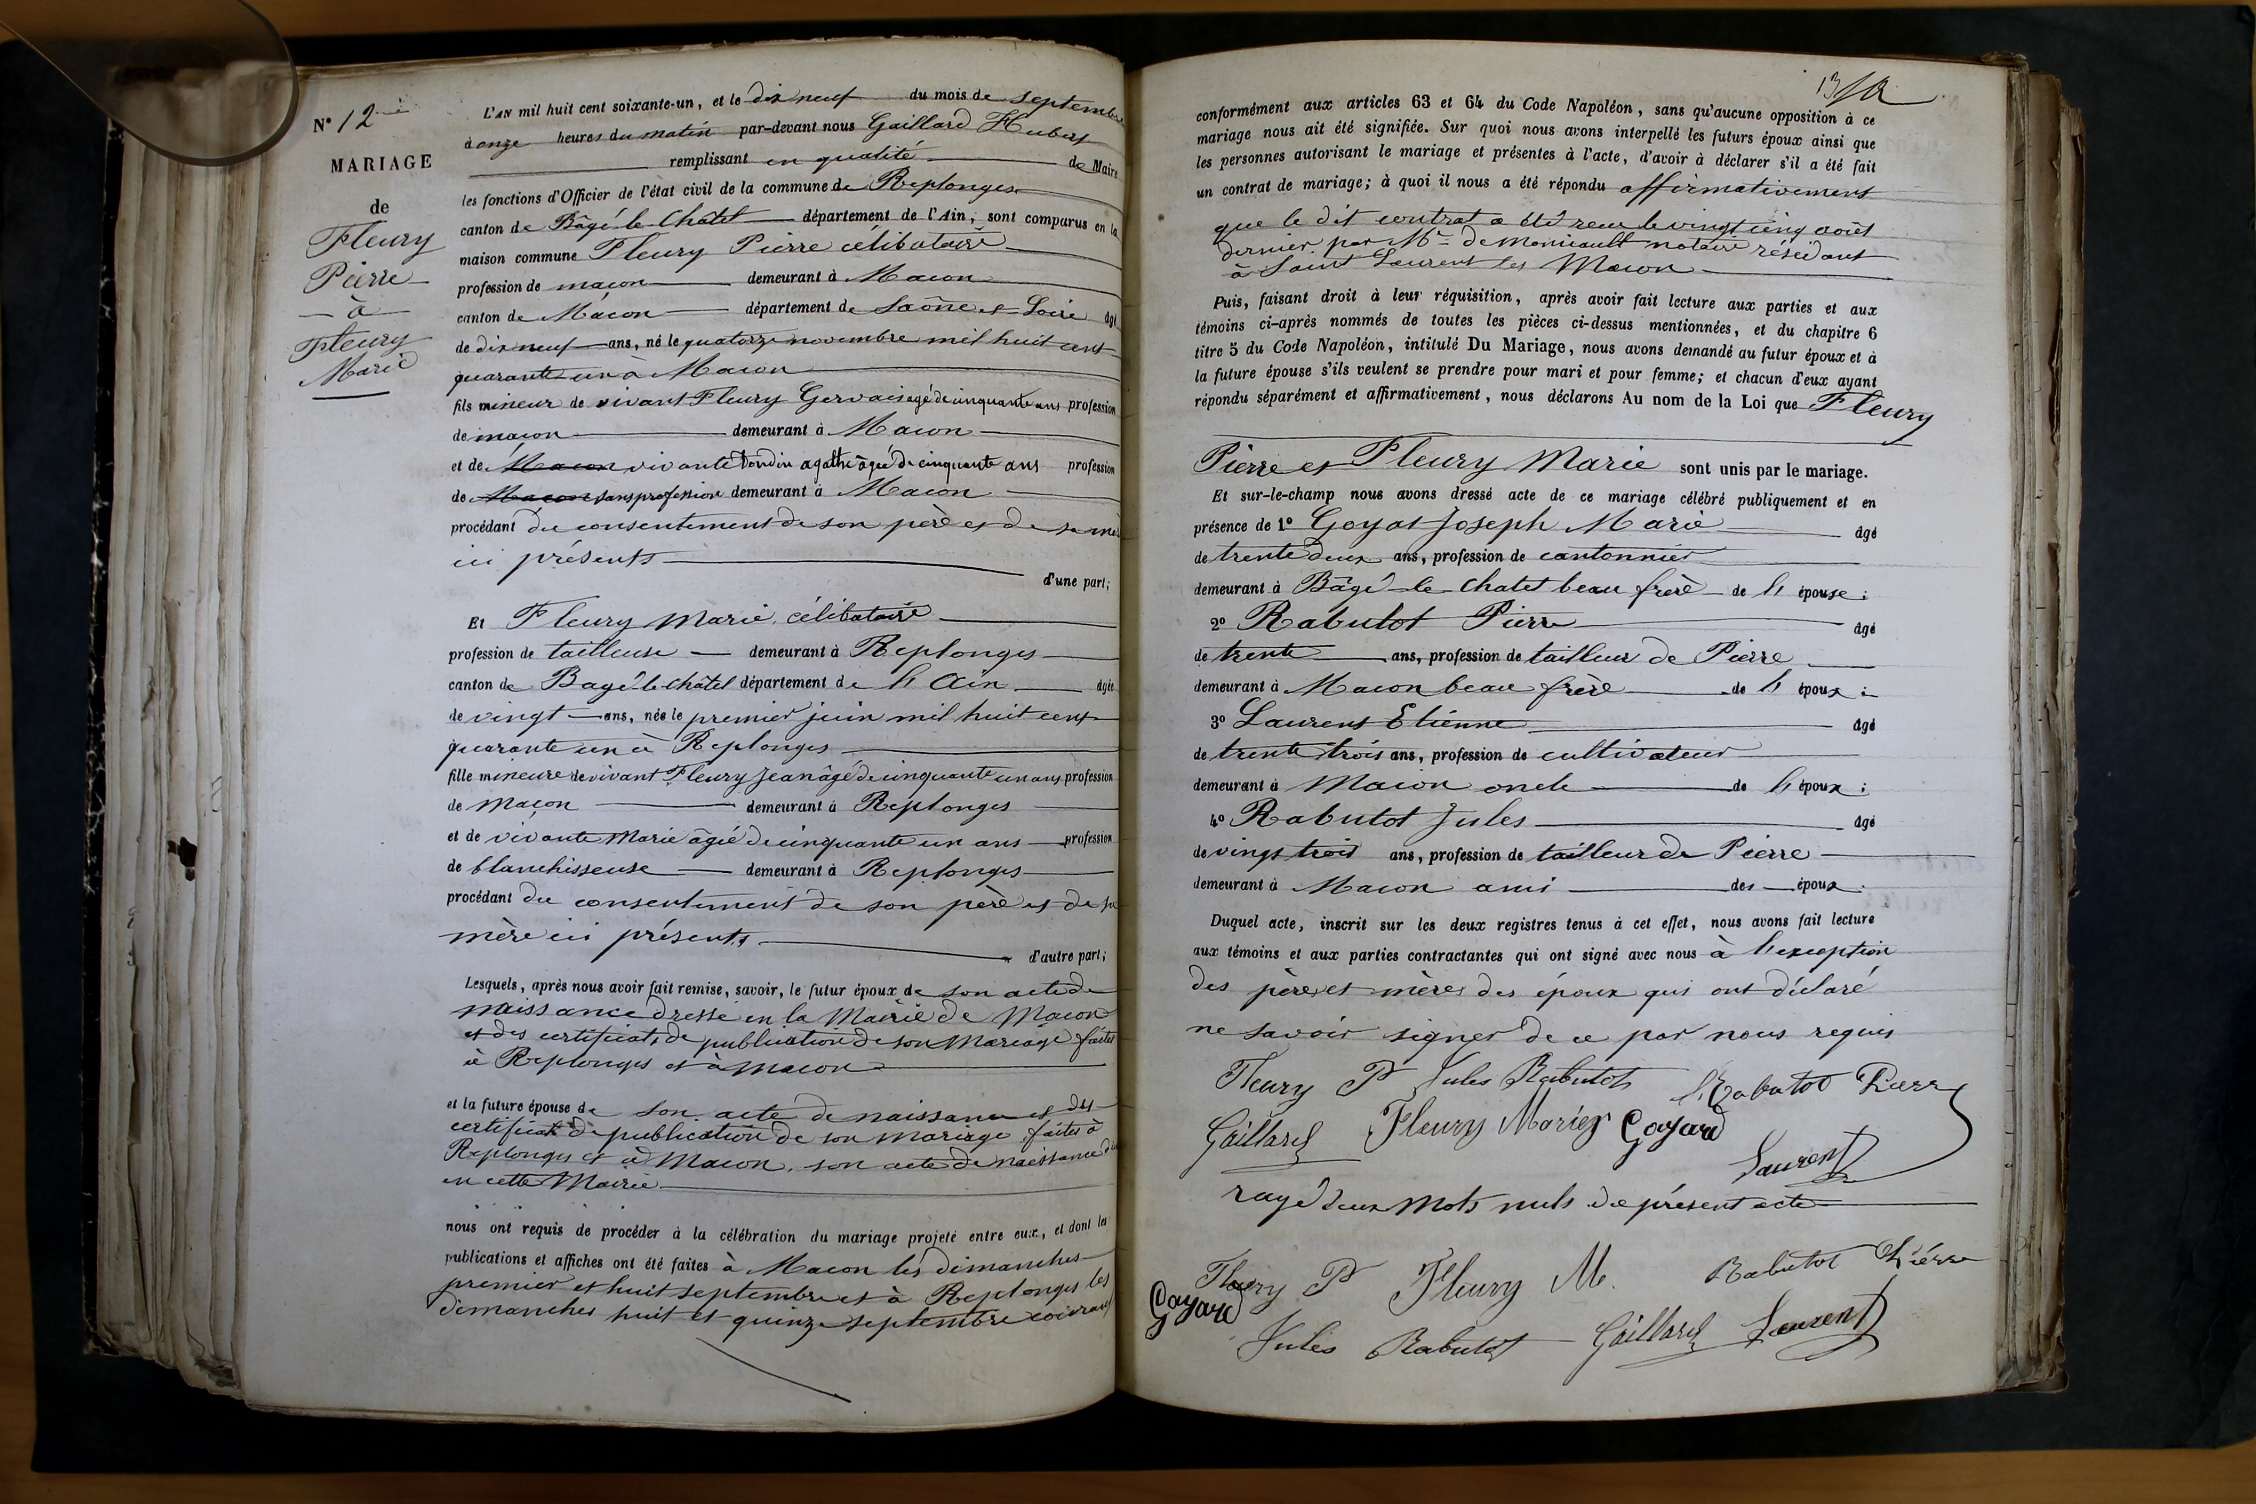 N° 12
MARIAGE
de
Fleury
Pierre
à
Fleury
Marie
L'AN mil huit cent soixante-un, et le dix neuf du mois de septembre
à onze heures du matin par-devant nous Gaillard Hubert
remplissant en qualité de Maire
les fonctions d'Officier de l'état civil de la commune de Replonges
canton de Bâgé-le-Châtel département de l'Ain; sont comparus en la
maison commune Fleury Pierre célibataire
profession de maçon demeurant à Macon
canton de Mâcon département de Saône et Loire âgé
de dix neuf ans, né le quatorze novembre mil huit cent
quarante un à Macon
fils mineur de vivant Fleury Gervais agé de cinquante ans profession
de maçon demeurant à Macon
et de Macon vivante Dondin agathe âgée de cinquante ans profession
de Macon sans profession demeurant à Macon
procédant du consentement de son père et de sa mère
ici présents
d'une part;
Et Fleury Marie célibataire
profession de tailleuse demeurant à Replonges
canton de Bagé-le-Châtel département de l'Ain âgée
de vingt ans, née le premier juin mil huit cent
quarante un à Replonges
fille mineure de vivant Fleury Jean âgé de cinquante un ans profession
de maçon demeurant à Replonges
et de vivante Marie âgée de cinquante un ans profession
de blanchisseuse demeurant à Replonges
procédant du consentement de son père et de sa
mère ici présents
d'autre part;
Lesquels, après nous avoir fait remise, savoir, le futur époux de son acte de
naissance dressé en la Mairie de Macon
et des certificats de publication de son Mariage faites
à Replonges et à Macon
et la future épouse de son acte de naissance et des
certificats de publication de son mariage faites à
Replonges et à Macon, son acte de naissance
en cette Mairie
nous ont requis de procéder à la célébration du mariage projeté entre eux, et dont les
publications et affiches ont été faites à Macon les dimanches
premier et huit septembre et à Replonges les
dimanches huit et quinze septembre courant
13
conformément aux articles 63 et 64 du Code Napoléon, sans qu'aucune opposition à ce
mariage nous ait été signifiée. Sur quoi nous avons interpellé les futurs époux ainsi que
les personnes autorisant le mariage et présentes à l'acte, d'avoir à déclarer s'il a été fait
un contrat de mariage; à quoi il nous a été répondu affirmativement
que le dit contrat a été reçu le vingt cinq août
dernier par Me notaire résidant
à Saint Laurent les Macon
Puis, faisant droit à leur réquisition, après avoir fait lecture aux parties et aux
témoins ci-après nommés de toutes les pièces ci-dessus mentionnées, et du chapitre 6
titre 5 du Code Napoléon, intitulé Du Mariage, nous avons demandé au futur époux et à
la future épouse s'ils veulent se prendre pour mari et pour femme; et chacun d'eux ayant
répondu séparément et affirmativement, nous déclarons Au nom de la Loi que Fleury
Pierre et Fleury Marie sont unis par le mariage.
Et sur-le-champ nous avons dressé acte de ce mariage célébré publiquement et en
présence de 1° Goyat Joseph Marie âgé
de trente deux ans, profession de cantonnier
demeurant à Bâgé-le-Chatel beau frère de l'épouse;
2° Rabutot Pierre âgé
de trente ans, profession de tailleur de Pierre
demeurant à Macon beau frère de l'époux;
3° Laurent Etienne âgé
de trente trois ans, profession de cultivateur
demeurant à Macon oncle de l'époux;
4° Rabutot Jules âgé
de vingt trois ans, profession de tailleur de Pierre
demeurant à Macon ami des époux.
Duquel acte, inscrit sur les deux registres tenus à cet effet, nous avons fait lecture
aux témoins et aux parties contractantes qui ont signé avec nous à l'exception
des père et mère des époux qui ont déclaré
ne savoir signer de ce par nous requis
Fleury P Jules Rabutot Rabutot Pierre
Gaillard Fleury Marie Goyard
Laurent
rayé deux mots nuls de présent acte
Fleury P Fleury M. Rabutot Pierre
Goyard
Jules Rabutot Gaillard Laurent